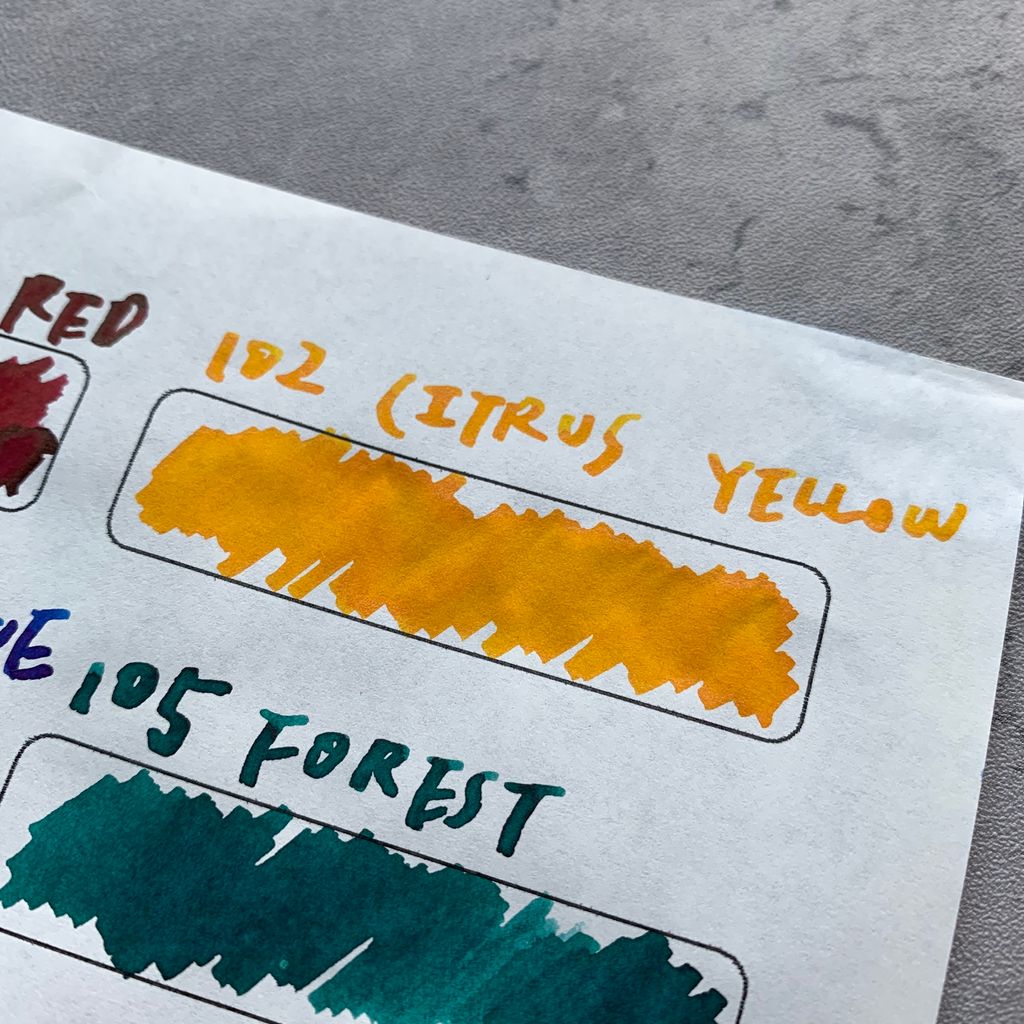 RED
102 CITRUS YELLOW
105 FOREST